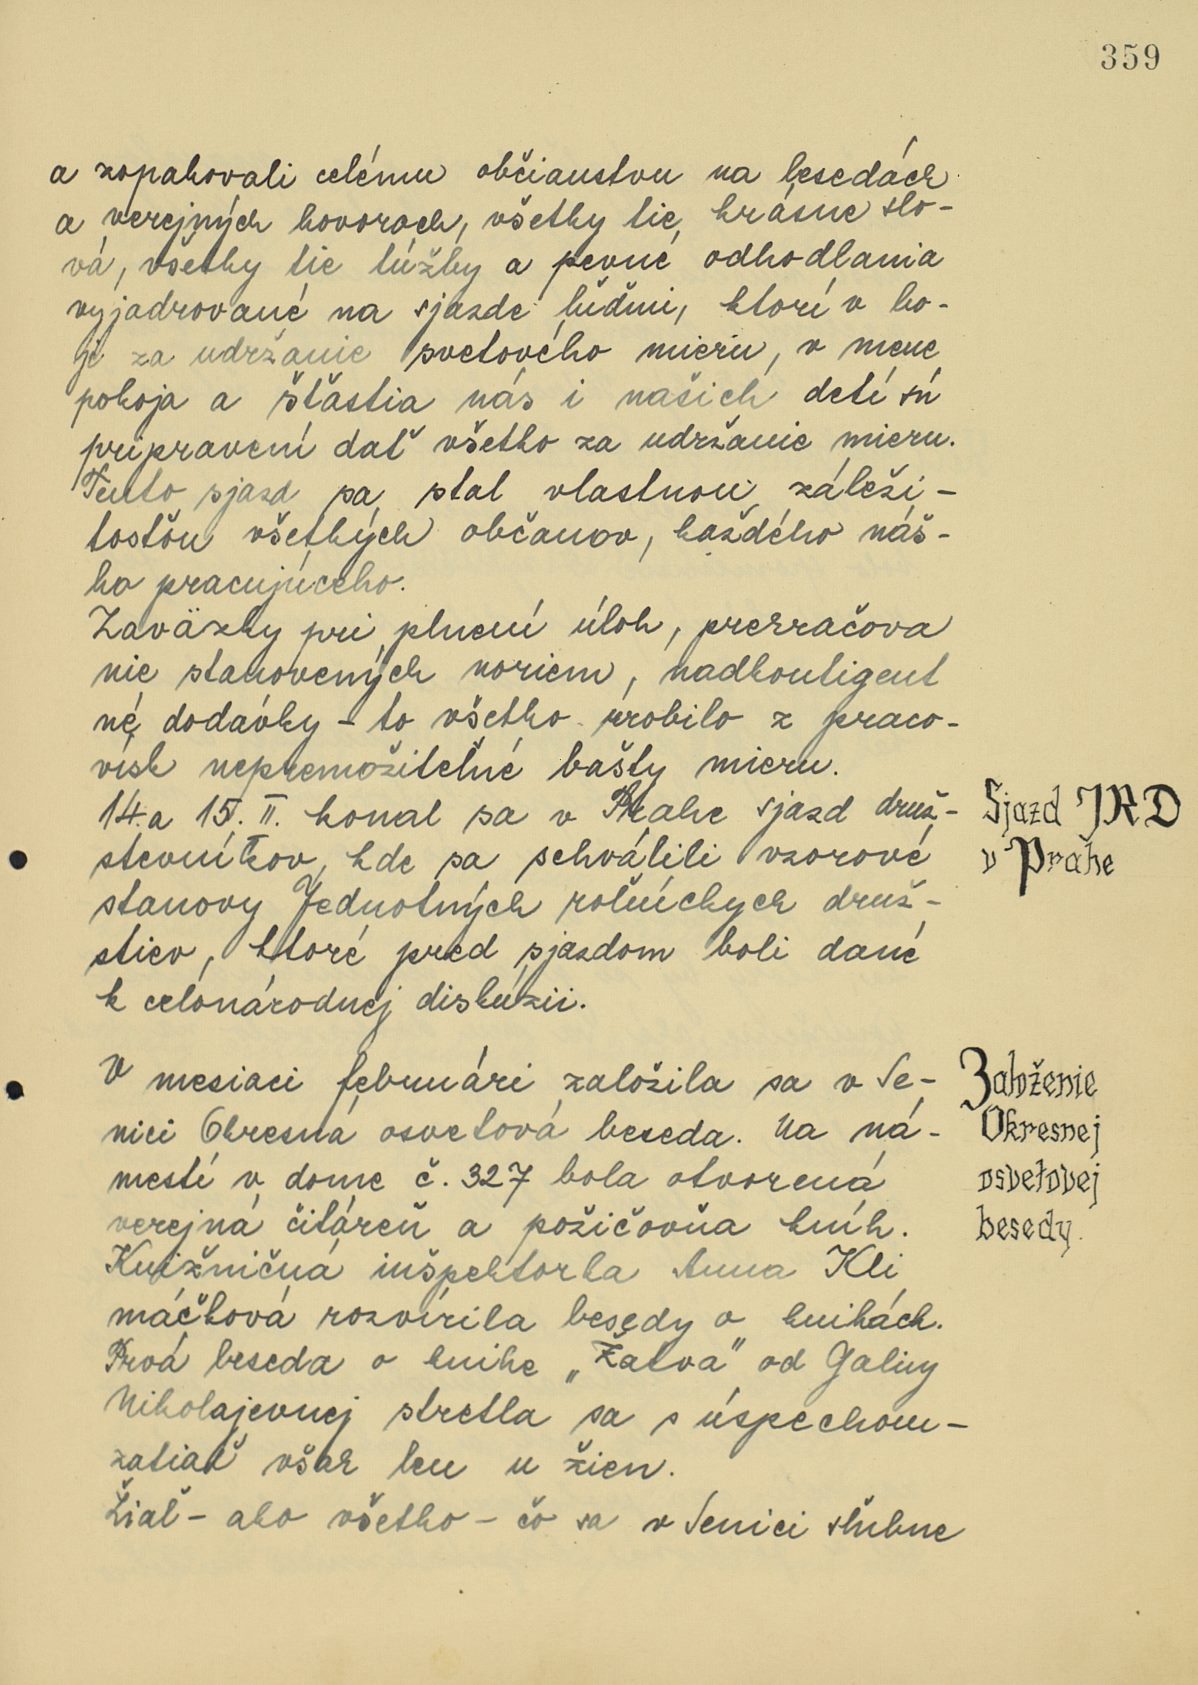 359
a zopakovali celému občianstvu na besedách
a verejných hovoroch, všetky tie krásne slo-
vá, všetky tie túžby a pevné odhodlania
vyjadrované na sjazde ľuďmi, ktorí v bo-
ji za udržanie svetového mieru, v mene
pokoja a šťastia nás i našich detí sú
pripravení dať všetko za udržanie mieru.
Tento sjazd sa stal vlastnou záleži-
tosťou všetkých občanov, každého náš-
ho pracujúceho.
Zaväzky pri plnení úloh, prekračova
nie stanovených noriem, nadkontigent
né dodávky - to všetko urobilo z praco-
vísk nepremožiteľné bašty mieru.
14. a 15. II. konal sa v Prahe sjazd druž-
stevníkov, kde sa schválili vzorové
stanovy Jednotných roľníckych druž-
stiev, ktoré pred sjazdom boli dané
k celonárodnej diskúzii.
Sjazd JRD
v Prahe
V mesiaci februári založila sa v Se-
nici Okresná osvetová beseda. Na ná-
mestí v dome č. 327 bola otvorená
verejná čitáreň a požičovňa kníh.
Knižničná inšpektorka Anna Kli
máčková rozvírila besedy o knihách.
Prvá beseda o knihe „Žatva" od Galiny
Nikolajevnej stretla sa s úspechom -
zatiaľ však len u žien.
Žiaľ - ako všetko - čo sa v Senici sľubne
Založenie
Okresnej
osvetovej
besedy.